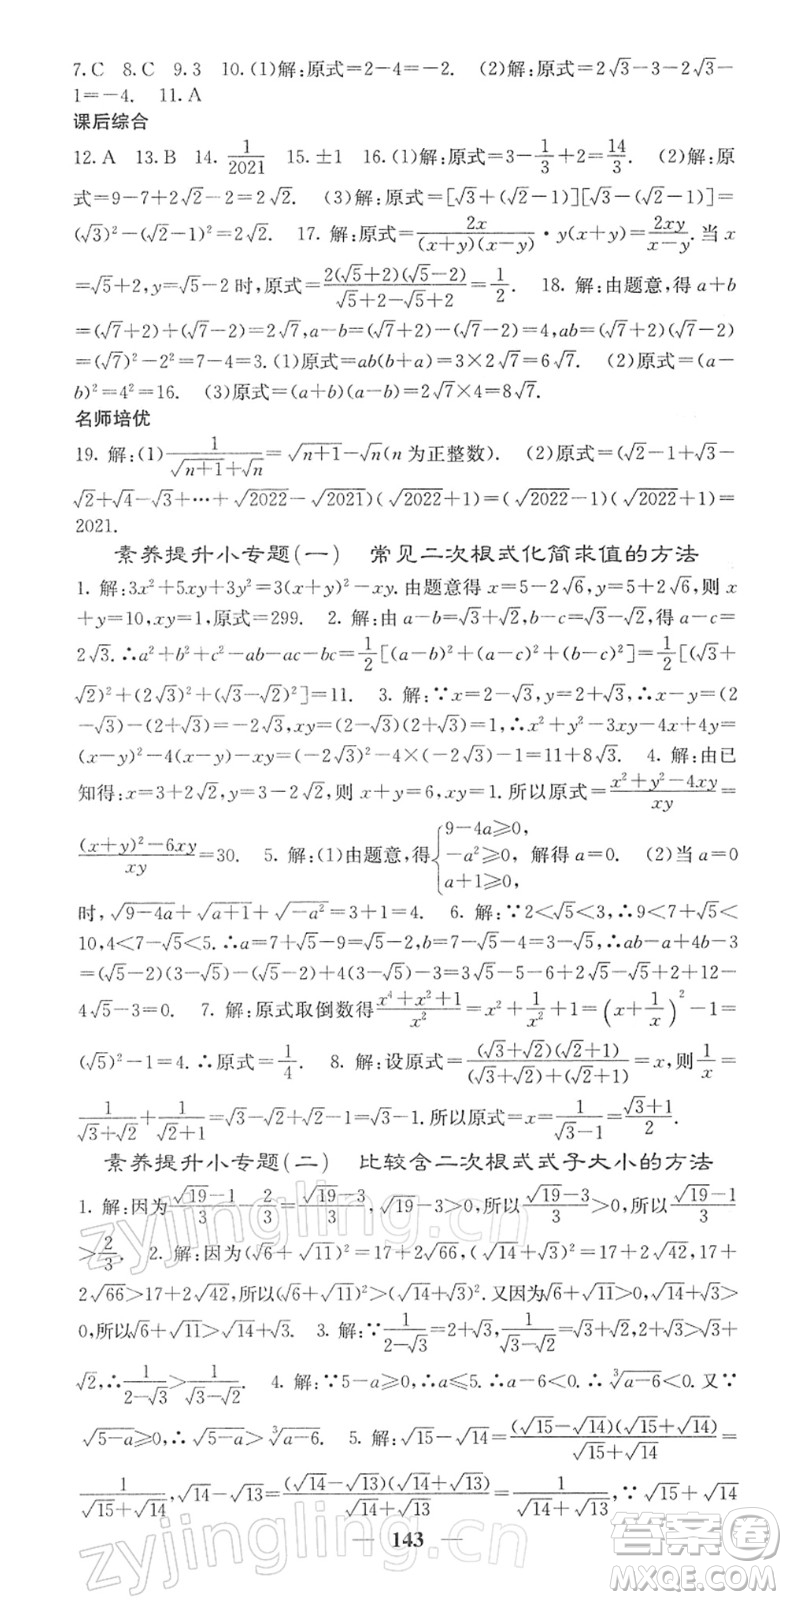 7. C 8. C 9. 3 10. (1)解:原式=2-4=-2. (2)解:原式=2√3-3-2√3-
1=-4. 11. A
课后综合
12. A 13. B 14. 1/2021 15. ±1 16. (1)解:原式=3-1/3+2=14/3. (2)解:原
式=9-7+2√2-2=2√2. (3)解:原式=[√3+(√2-1)][√3-(√2-1)]=
(√3)²-(√2-1)²=2√2. 17. 解:原式=2x/((x+y)(x-y))·y(x+y)=2xy/(x-y). 当 x
=√5+2,y=√5-2 时,原式=2(√5+2)(√5-2)/(√5+2-√5+2)=1/2. 18. 解:由题意,得 a+b
=(√7+2)+(√7-2)=2√7,a-b=(√7+2)-(√7-2)=4,ab=(√7+2)(√7-2)
=(√7)²-2²=7-4=3.(1)原式=ab(b+a)=3×2√7=6√7. (2)原式=(a-
b)²=4²=16. (3)原式=(a+b)(a-b)=2√7×4=8√7.
名师培优
19. 解:(1)1/(√(n+1)+√n)=√(n+1)-√n(n 为正整数). (2)原式=(√2-1+√3-
√2+√4-√3+…+√2022-√2021)(√2022+1)=(√2022-1)(√2022+1)=
2021.
素养提升小专题(一) 常见二次根式化简求值的方法
1. 解:3x²+5xy+3y²=3(x+y)²-xy. 由题意得 x=5-2√6,y=5+2√6,则 x
+y=10,xy=1,原式=299. 2. 解:由 a-b=√3+√2,b-c=√3-√2,得 a-c=
2√3.∴a²+b²+c²-ab-ac-bc=1/2[(a-b)²+(a-c)²+(b-c)²]=1/2[(√3+
√2)²+(2√3)²+(√3-√2)²]=11. 3. 解:∵x=2-√3,y=2+√3,∴x-y=(2
-√3)-(2+√3)=-2√3,xy=(2-√3)(2+√3)=1,∴x²+y²-3xy-4x+4y=
(x-y)²-4(x-y)-xy=(-2√3)²-4×(-2√3)-1=11+8√3. 4. 解:由已
知得:x=3+2√2,y=3-2√2,则 x+y=6,xy=1.所以原式=(x²+y²-4xy)/xy=
((x+y)²-6xy)/xy=30. 5. 解:(1)由题意,得{9-4a≥0, -a²≥0, a+1≥0, 解得 a=0. (2)当 a=0
时,√(9-4a)+√(a+1)+√(-a²)=3+1=4. 6. 解:∵2<√5<3,∴9<7+√5<
10,4<7-√5<5.∴a=7+√5-9=√5-2,b=7-√5-4=3-√5.∴ab-a+4b-3
=(√5-2)(3-√5)-(√5-2)+4(3-√5)-3=3√5-5-6+2√5-√5+2+12-
4√5-3=0. 7. 解:原式取倒数得(x⁴+x²+1)/x²=x²+1/x²+1=(x+1/x)²-1=
(√5)²-1=4.∴原式=1/4. 8. 解:设原式=(√3+√2)(√2+1)/((√3+√2)+(√2+1))=x,则1/x=
1/(√3+√2)+1/(√2+1)=√3-√2+√2-1=√3-1.所以原式=x=1/(√3-1)=(√3+1)/2.
素养提升小专题(二) 比较含二次根式式子大小的方法
1. 解:因为(√19-1)/3-2/3=(√19-3)/3,√19-3>0,所以(√19-3)/3>0,所以(√19-1)/3
>2/3. 2. 解:因为(√6+√11)²=17+2√66,(√14+√3)²=17+2√42,17+
2√66>17+2√42,所以(√6+√11)²>(√14+√3)².又因为√6+√11>0,√14+√3>
0,所以√6+√11>√14+√3. 3. 解:∵1/(2-√3)=2+√3,1/(√3-√2)=√3+√2,2+√3>√3+
√2,∴1/(2-√3)>1/(√3-√2). 4. 解:∵5-a≥0,∴a≤5.∴a-6<0.∴∛(a-6)<0.又∵
√(5-a)≥0,∴√(5-a)>∛(a-6). 5. 解:√15-√14=(√15-√14)(√15+√14)/(√15+√14)=
1/(√15+√14),√14-√13=(√14-√13)(√14+√13)/(√14+√13)=1/(√14+√13).∵√15+√14>
143
zyjingling.cn
zyjingling.cn
答案卷